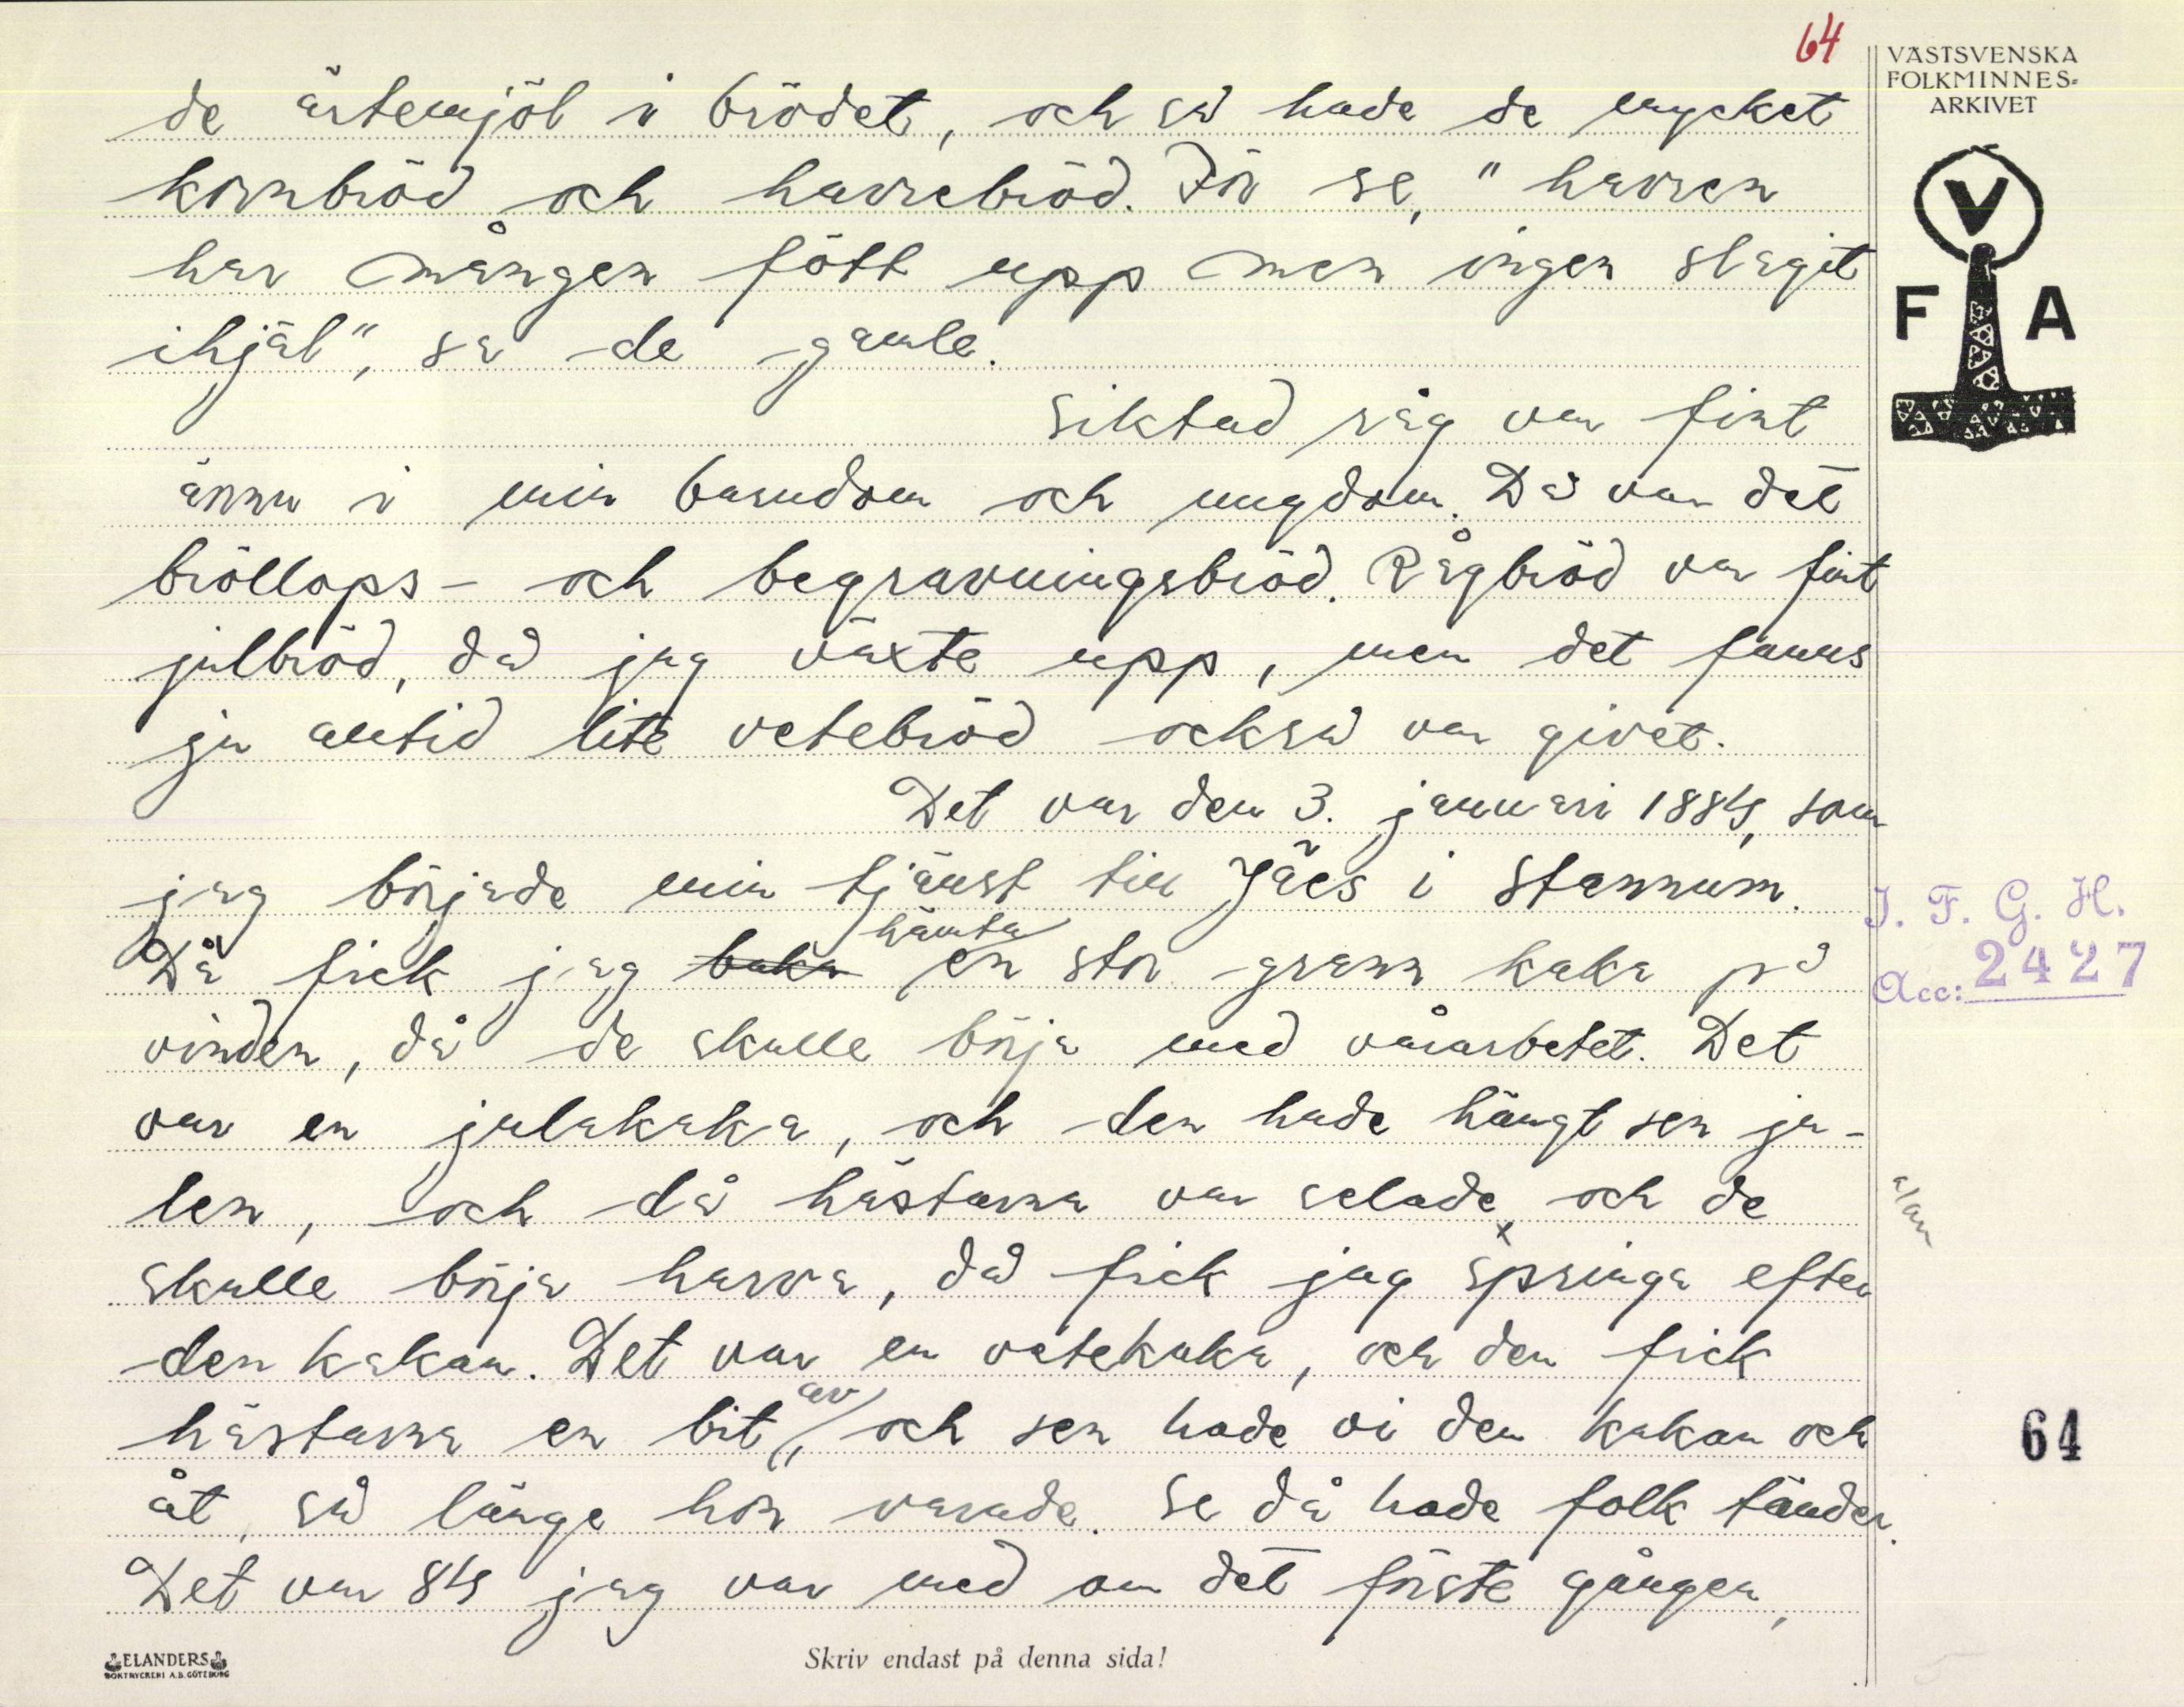 64
VÄSTSVENSKA
FOLKMINNES=
ARKIVET
V
F A
de ärtemjöl i brödet, och så hade de mycket
kornbröd och havrebröd. För se, "havren
har mången fött upp men ingen slagit
ihjäl", sa de gamle.
Siktad råg var fint
ännu i min barndom och ungdom. Då var det
bröllops- och begravningsbröd. Rågbröd var fint
julbröd, då jag växte upp, men det fanns
ju alltid lite vetebröd också var givet.
Det var den 3. januari 1884, som
jag började min tjänst till Jäcs i Stannum.
hämta
Då fick jag baka en stor grann kaka på
vinden, då de skulle börja med vårarbetet. Det
var en julakaka, och den hade hängt sen ju-
len, och då hästarna var selade, och de
skulle börja harva, då fick jag springa efter
den kakan. Det var en vetekaka, och den fick
hästarna en bit av, och sen hade vi den kakan och
åt, så länge hon varade. Se då hade folk tänder.
Det var 84 jag var med om det förste gången,
I. F. G. H.
Acc: 2427
64
ELANDERS
BOKTRYCKERI A.B. GÖTEBORG
Skriv endast på denna sida!